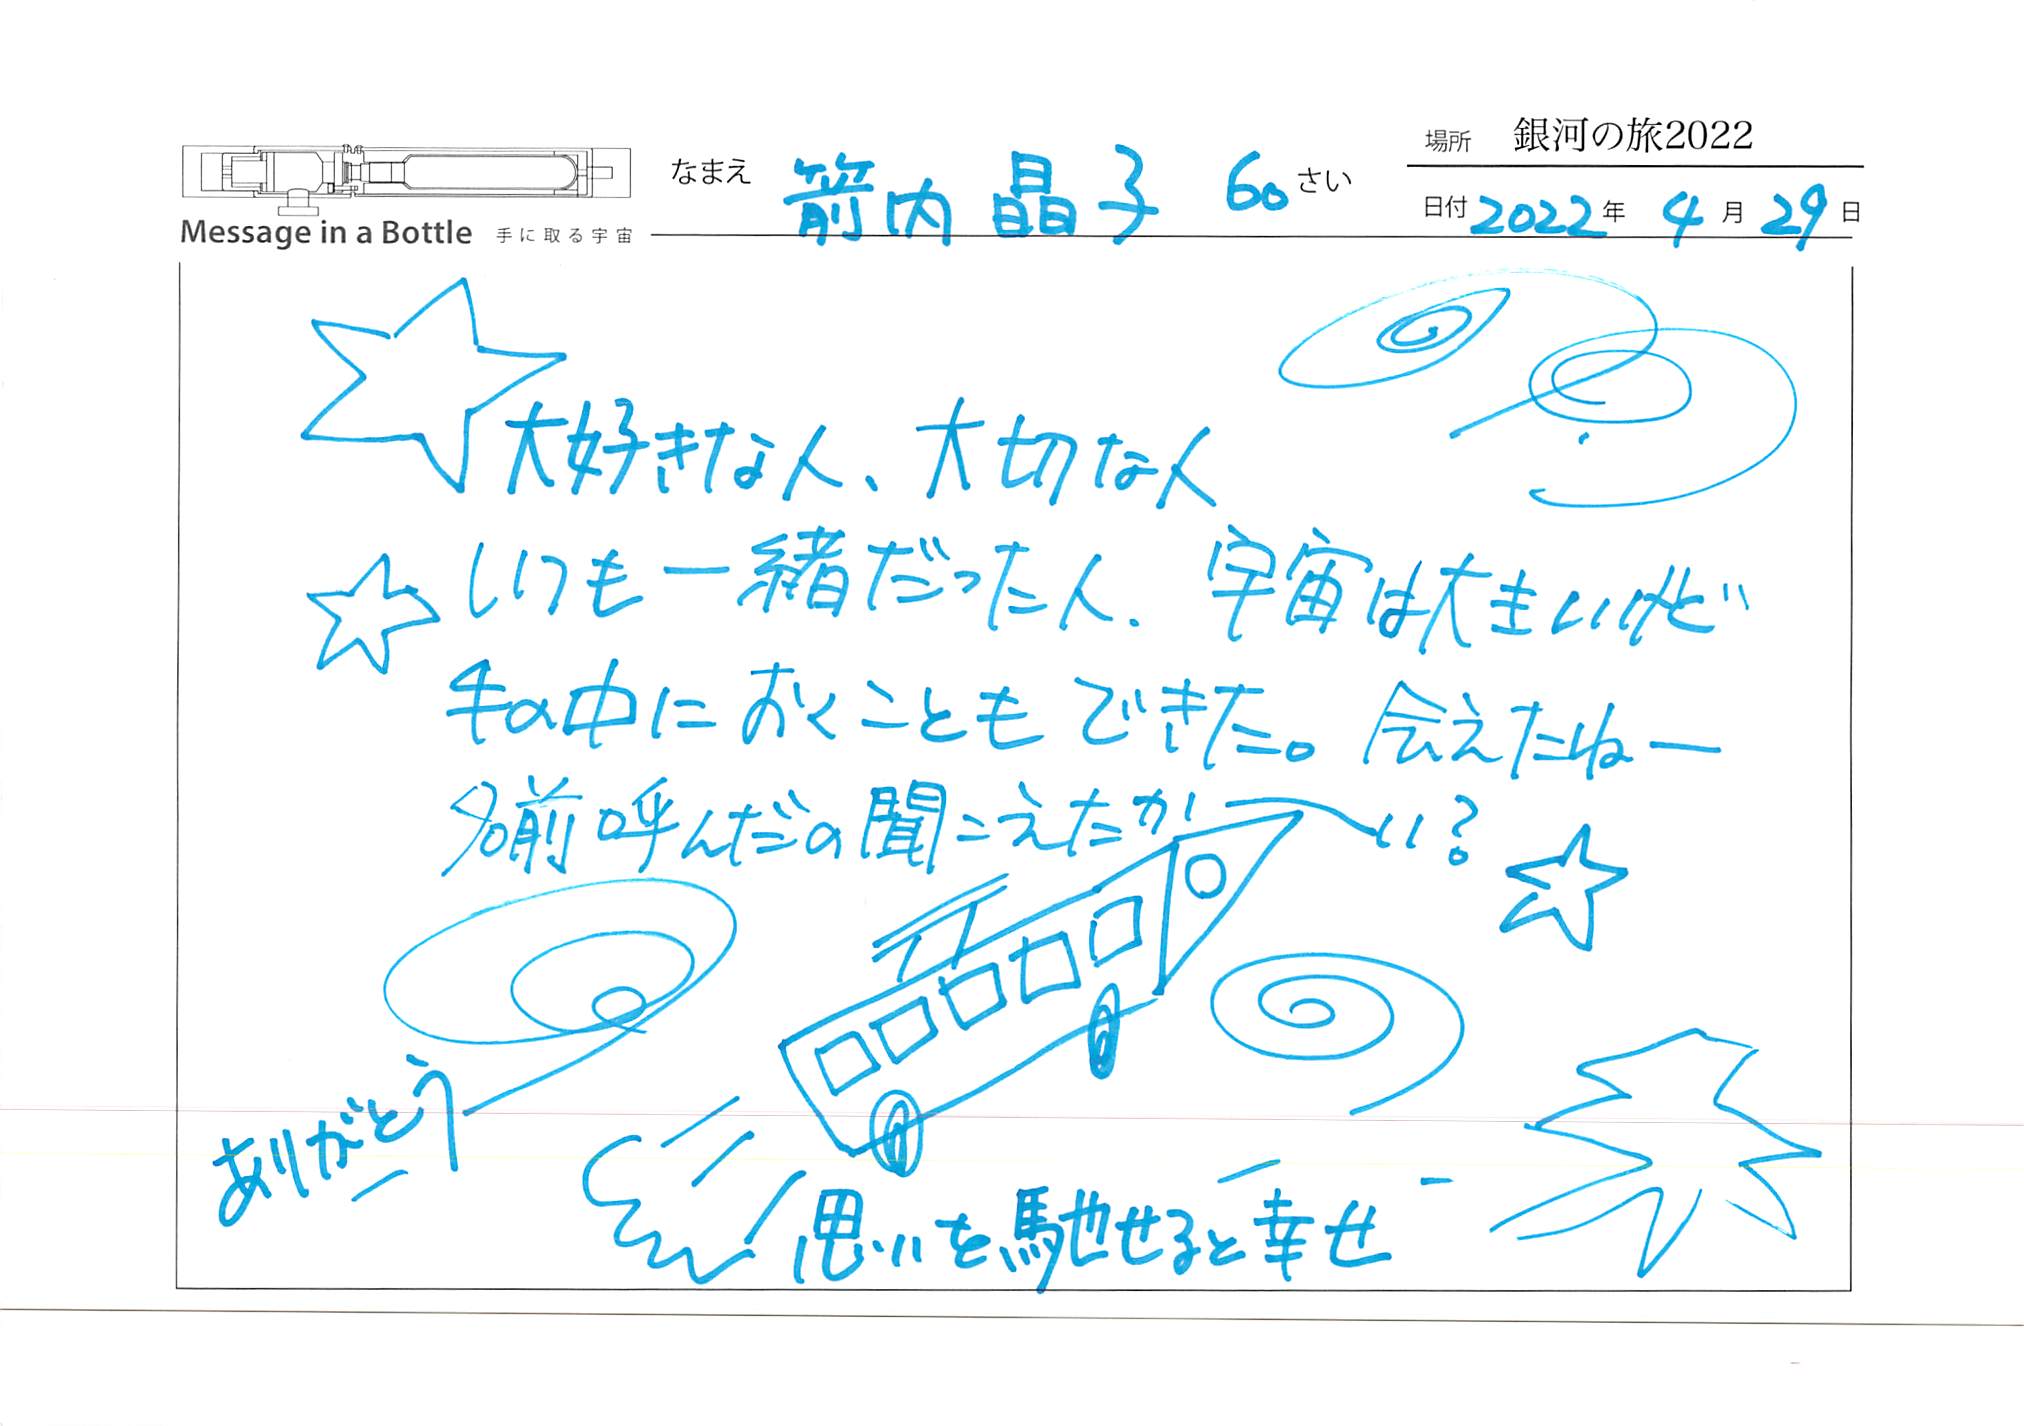 場所 銀河の旅2022
なまえ 箭内 晶子 60さい
日付 2022年 4月29日
Message in a Bottle 手に取る宇宙
大好きな人、大切な人
いつも一緒だった人、宇宙は大きいけど
手の中におくこともできた。会えたねー
名前呼んだの聞こえたか〜い?
ありがとう
思いを馳せると幸せ